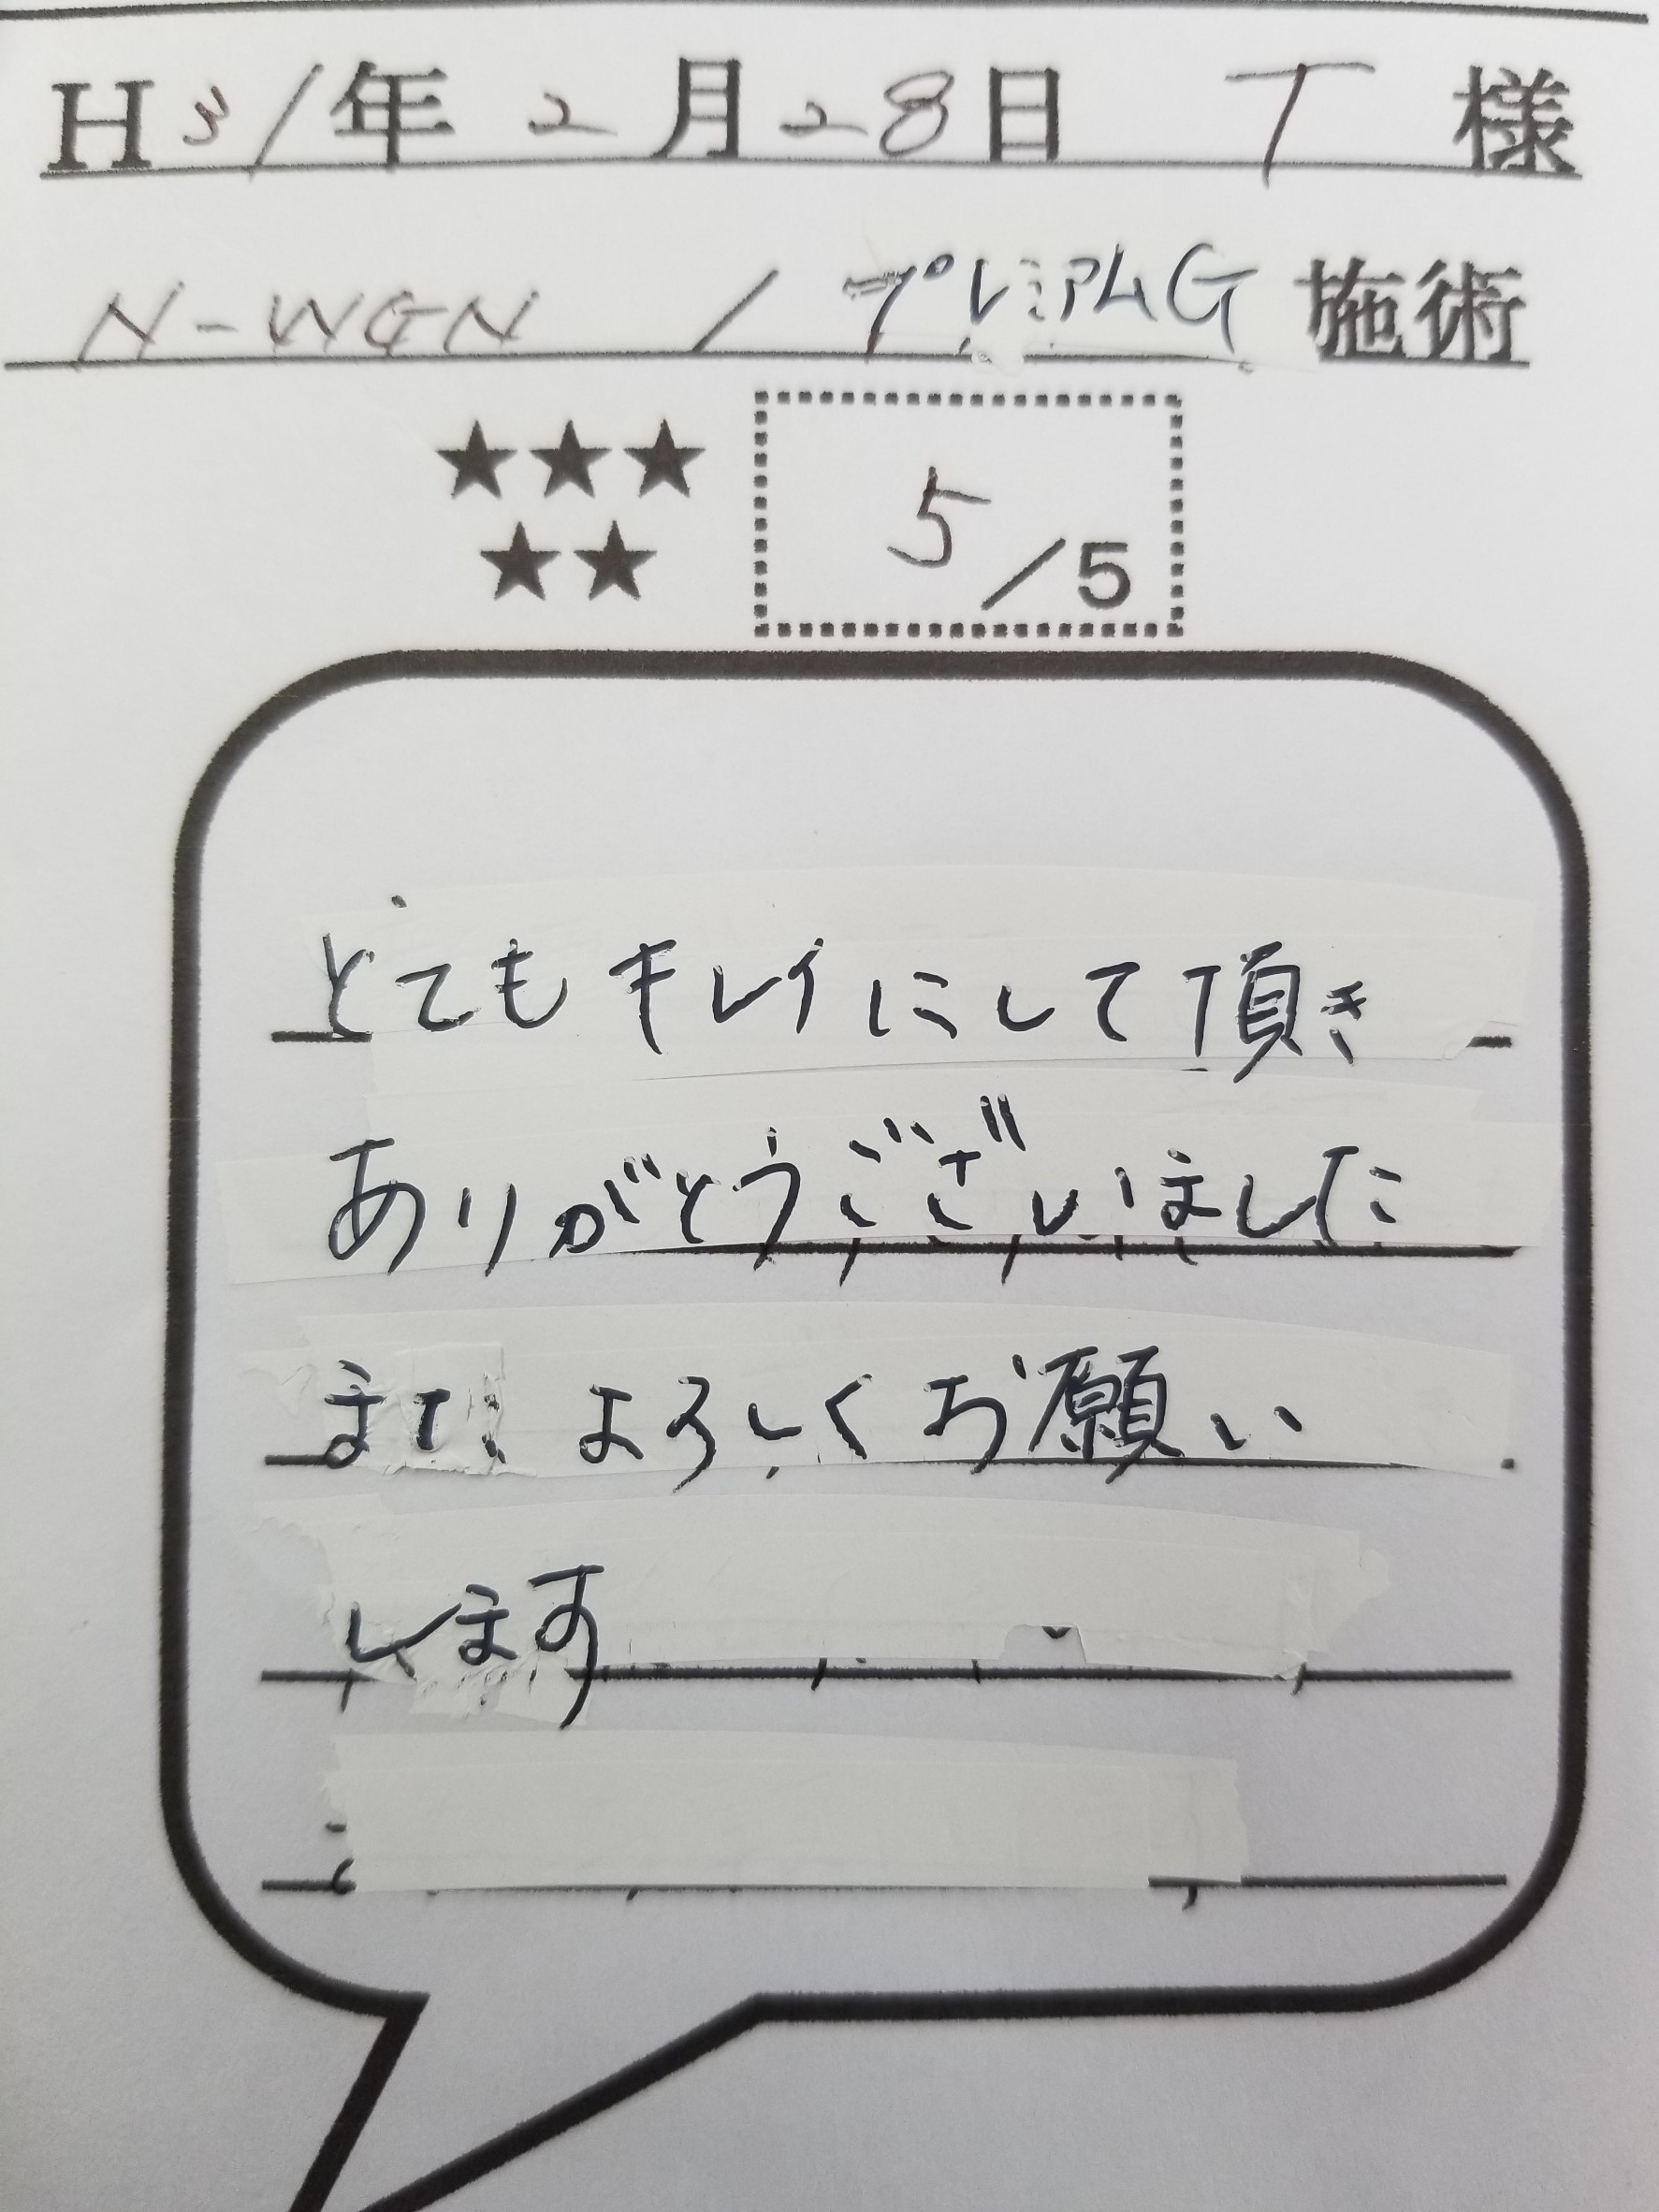 H31年2月28日 T 様
N-WGN / プレミアムG 施術
★★★
★★
5/5
とてもキレイにして頂き
ありがとうございました
また よろしくお願い
します